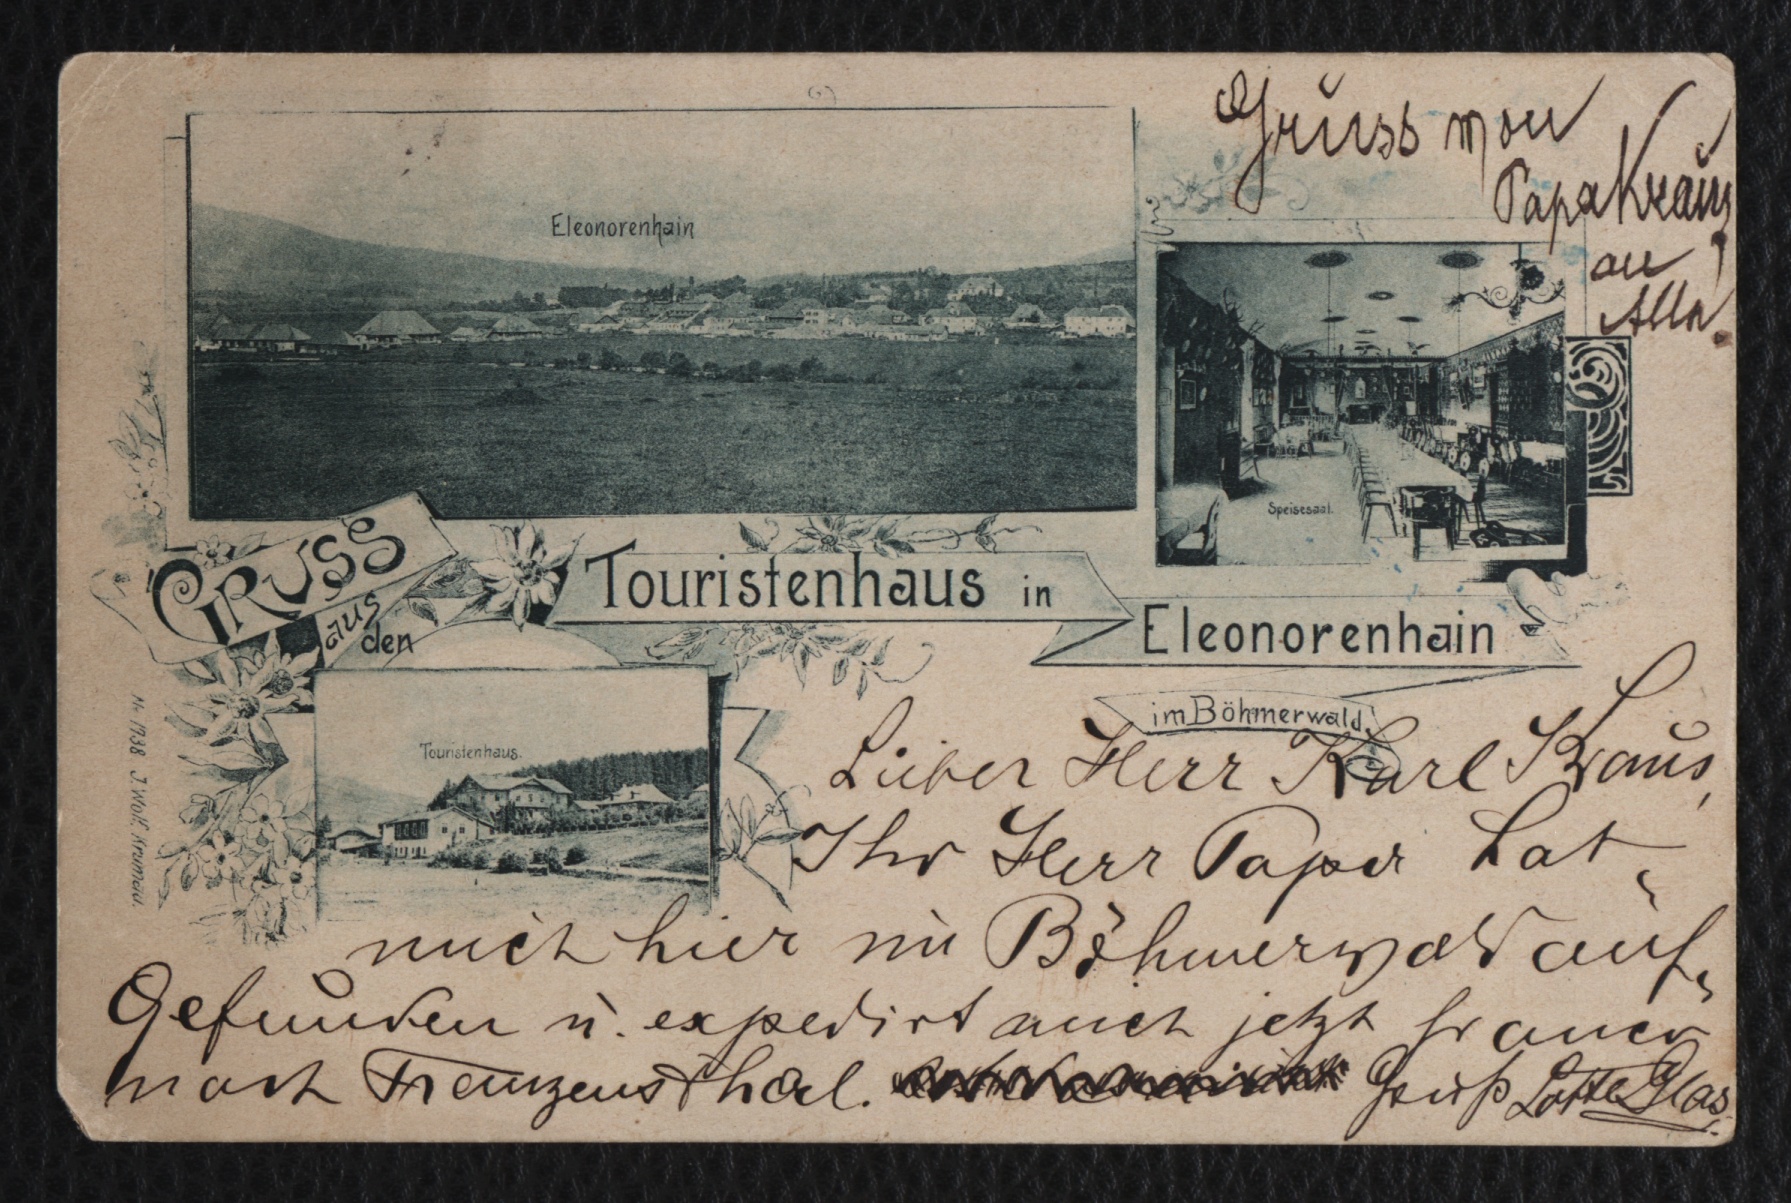 Gruss von
Papa Kraus
an
Alle
Eleonorenhain
Speisesaal.
GRUSS
aus
den
Touristenhaus in
Eleonorenhain
im Böhmerwald
Touristenhaus.
J. Wolf, Krumau.
Lieber Herr Karl Kraus,
Ihr Herr Papa hat
mich hier im Böhmerwald auf
gefunden u. expedirt mich jetzt
nach Franzensthal. Gruß Lotte Glas.